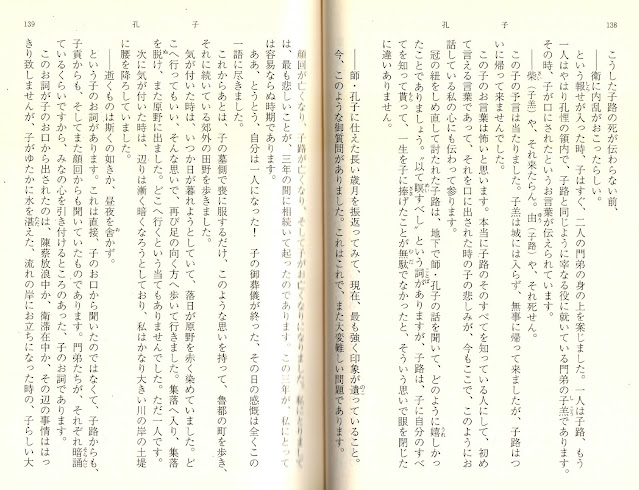 138
孔子
こうした子路の死が伝わらない前、
――衛に内乱がおこったらしい。
という報せが入った時、子はすぐ、二人の門弟の身の上を案じました。一人は子路、もう
一人はやはり孔悝の領内で、子路と同じように宰なる役に就いている門弟の子羔であります。
その時、子が口にされたというお言葉が伝えられています。
――柴(子羔)や、それ来たらん。由(子路)や、それ死せん。
この子の予言は当たりました。子羔は城には入らず、無事に帰って来ましたが、子路はつ
いに帰って来ませんでした。
この子のお言葉は怖いと思います。本当に子路のそのすべてを知っている人にして、初め
て言える言葉であって、それを口に出された時の子の悲しみが、今もここで、このようにお
話している私の心にも伝わって参ります。
冠の紐をしめ直して討たれた子路は、地下で師・孔子の話を聞いて、どのように嬉しかっ
たことでありましょう。“以て瞑すべし”という詞がありますが、子路は、子に自分のすべ
てを知って貰って、一生を子に捧げたことが無駄でなかったと、そういう思いで眼を閉じた
に違いありません。
――師・孔子に仕えた長い歳月を振返ってみて、現在、最も強く印象が遺っていること。
今、このような御質問がありました。これはこれで、また大変難しい問題であります。
139
孔子
顔回が亡くなり、子路が亡くなり、そして子がお亡くなりになりました。私にとりまして
は、最も悲しいことが、三年の間に相続いて起ったのであります。この三年が、私にとって
は容易ならぬ時期であります。
ああ、とうとう、自分は一人になった! 子の御葬儀が終った、その日の感慨は全くこの
一語に尽きました。
これからあとは、子の墓側で喪に服するだけ、このような思いを持って、魯都の町を歩き、
それに続いている郊外の田野を歩きました。
気が付いた時は、いつか日が暮れようとしていて、落日が原野を赤く染めていました。ど
こへ行ってもいい、そんな思いで、再び足の向く方へ歩いて行きました。集落へ入り、集落
を脱け、また原野に出ました。どこへ行くという当てもありませんでした。ただ一人です。
次に気が付いた時は、辺りは漸く暗くなろうとしており、私はかなり大きい川の岸の土堤
に腰を降ろしていました。
――逝くものは斯くの如きか、昼夜を舎かず。
という子のお詞があります。これは直接、子のお口から聞いたのではなくて、子路からも、
子貢からも、そしてまた顔回からも聞いていたものであります。門弟たちが、それぞれ暗誦
しているくらいですから、みなの心を引き付けるところのあった、子のお詞であります。
このお詞が子のお口から出されたのは、陳蔡放浪中か、衛滞在中か、その辺の事情ははっ
きり致しませんが、子がゆたかに水を湛えた、流れの岸にお立ちになった時の、子らしい大